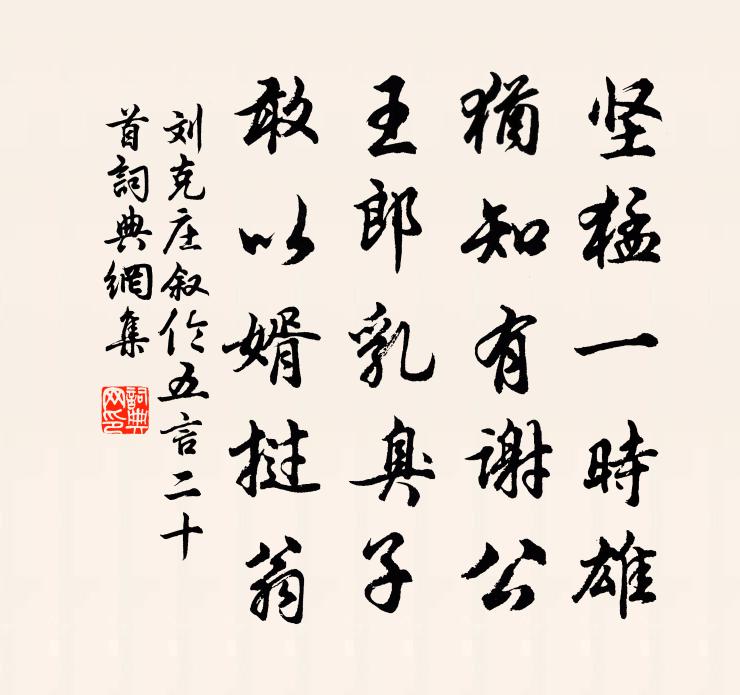 坚猛一時雄
猶知有謝公
王郎乳臭子
敢以婿挝翁
刘克庄叙伦五言二十
首詞典網集
詞典网印